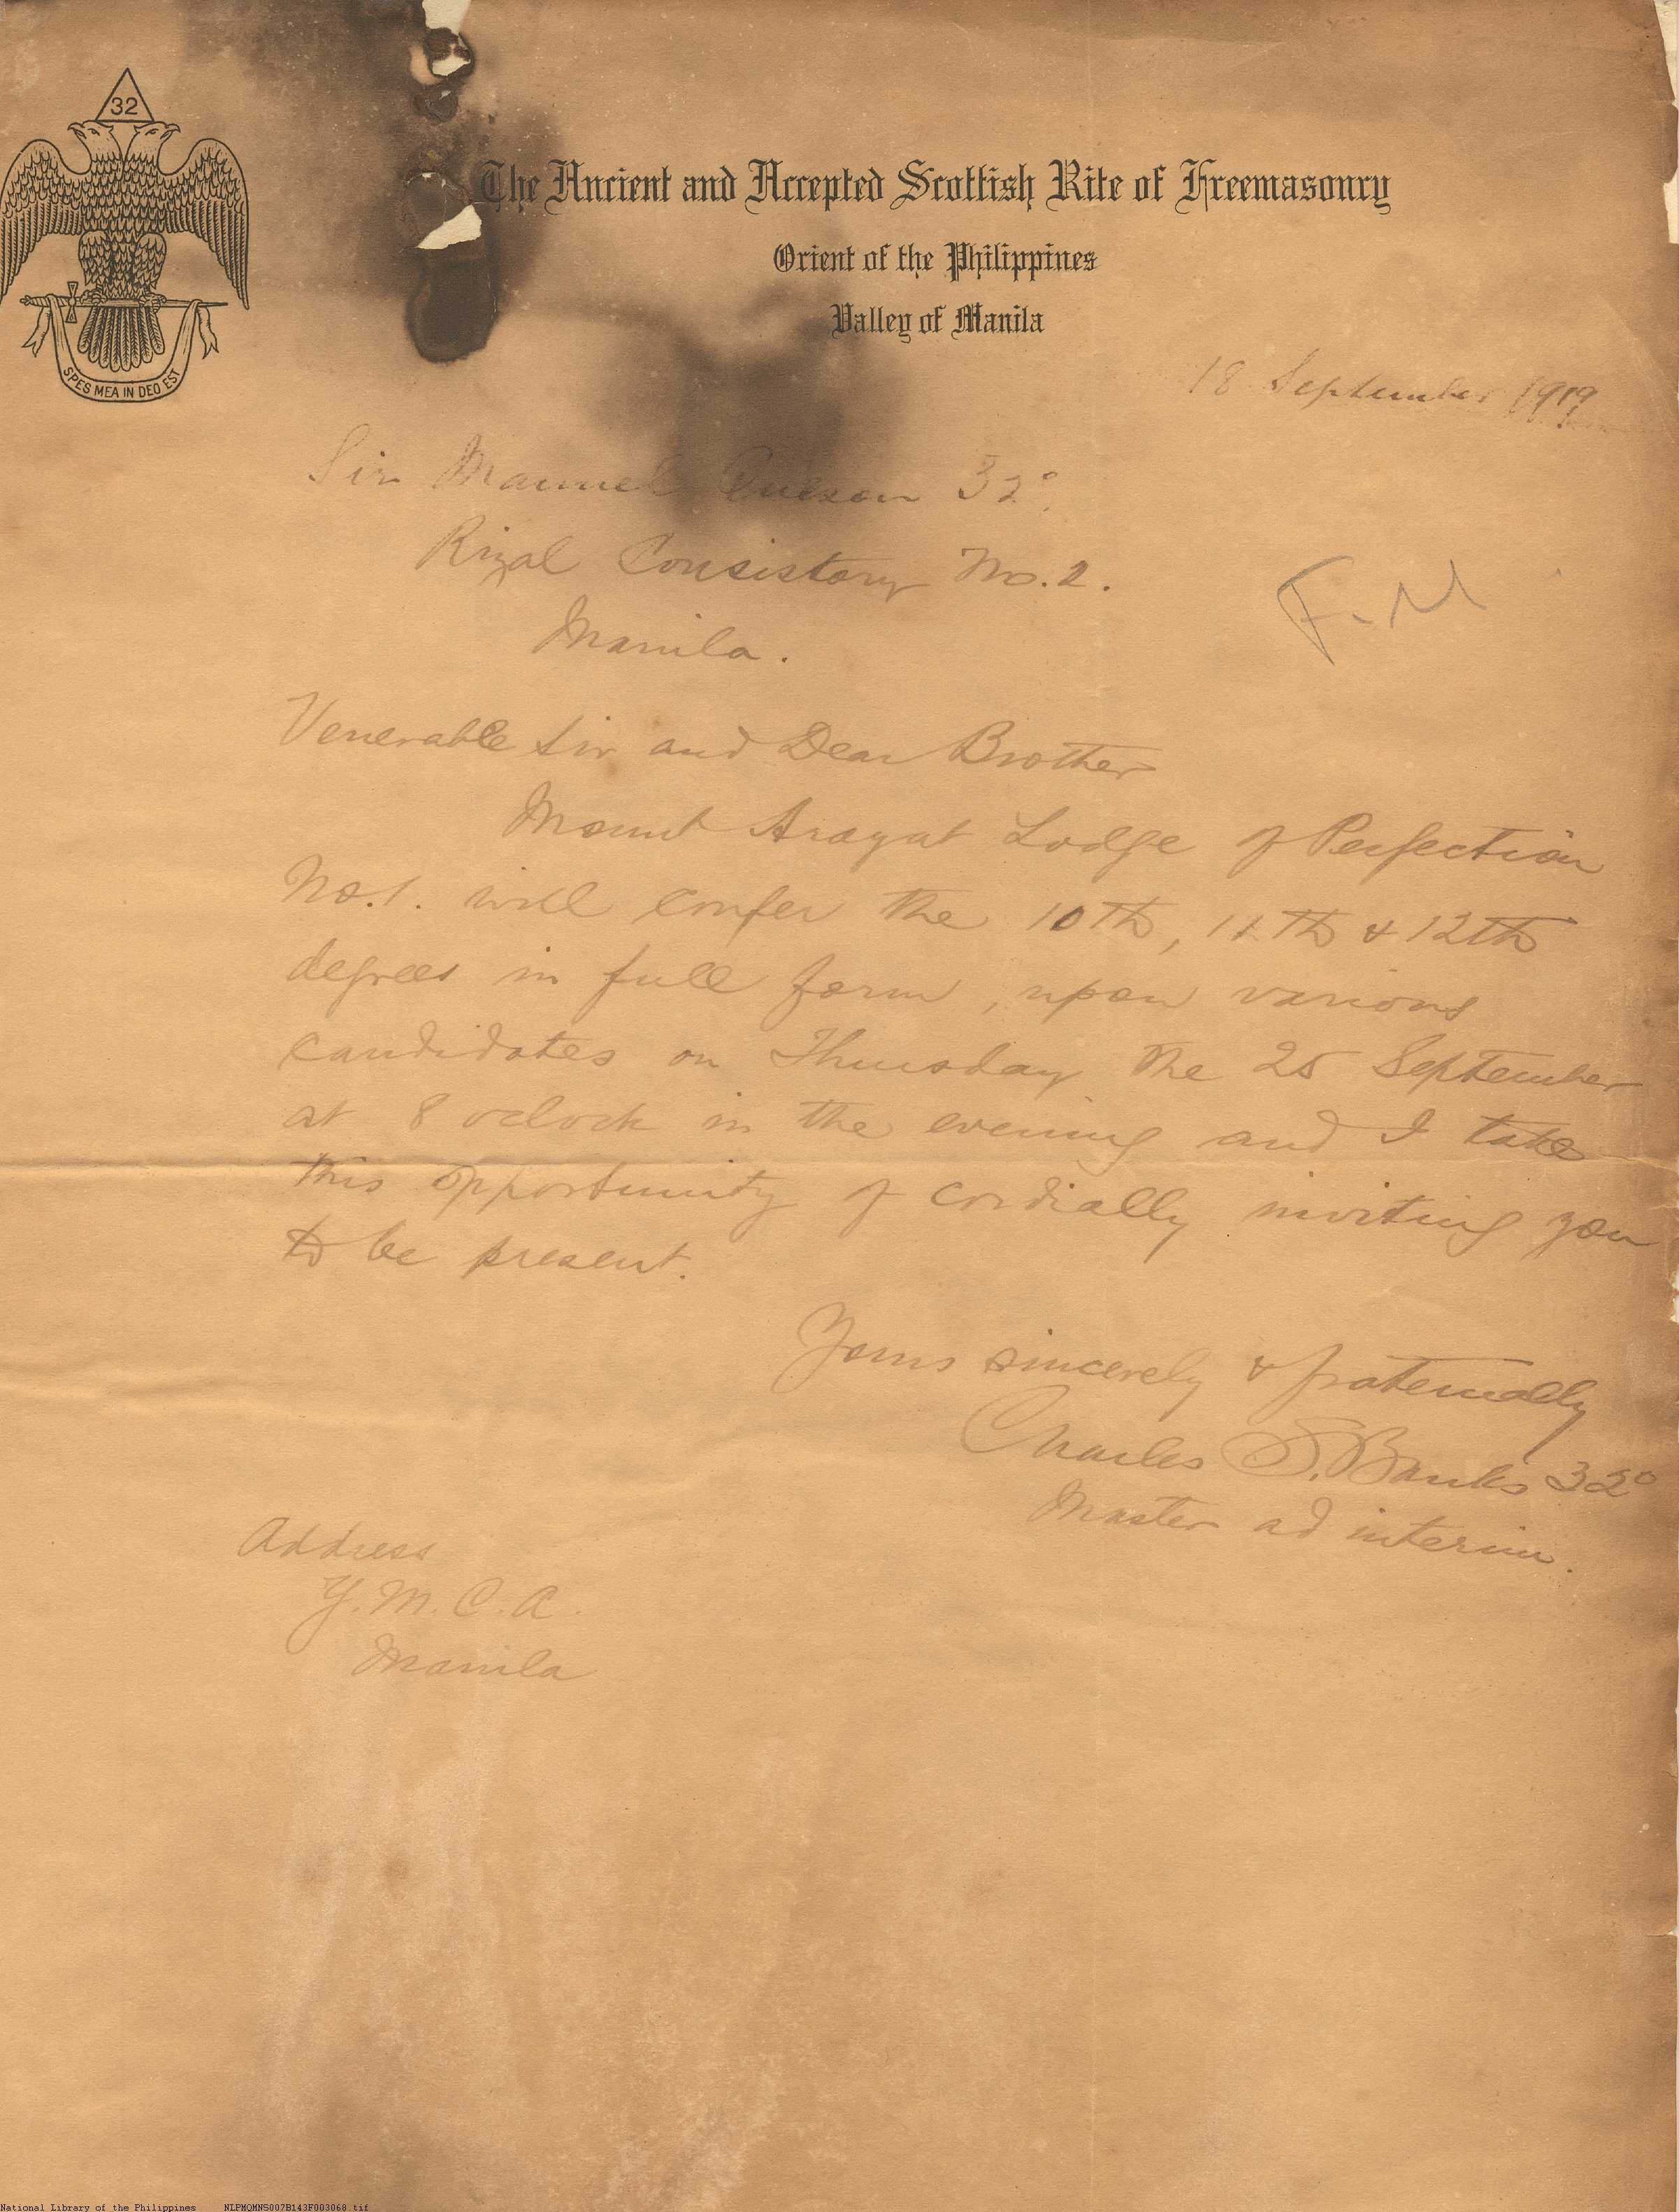 32
SPES MEA IN DEO EST
The Ancient and Accepted Scottish Rite of Freemasonry
Orient of the Philippines
Valley of Manila
18 September 1919
Sir Manuel Quezon 32°
Rizal Consistory No. 2.
Manila.
F. M
Venerable Sir and Dear Brother
Mount Arayat Lodge of Perfection
No. 1. will confer the 10th, 11th & 12th
degrees in full form, upon various
candidates on Thursday the 25 September
at 8 oclock in the evening and I take
this opportunity of cordially inviting you
to be present.
Yours sincerely & fraternally
Charles S. Banks 32°
Master ad interim.
Address
Y. M. C. A.
Manila
National Library of the Philippines NLPMQMNS007B143F003068.tif